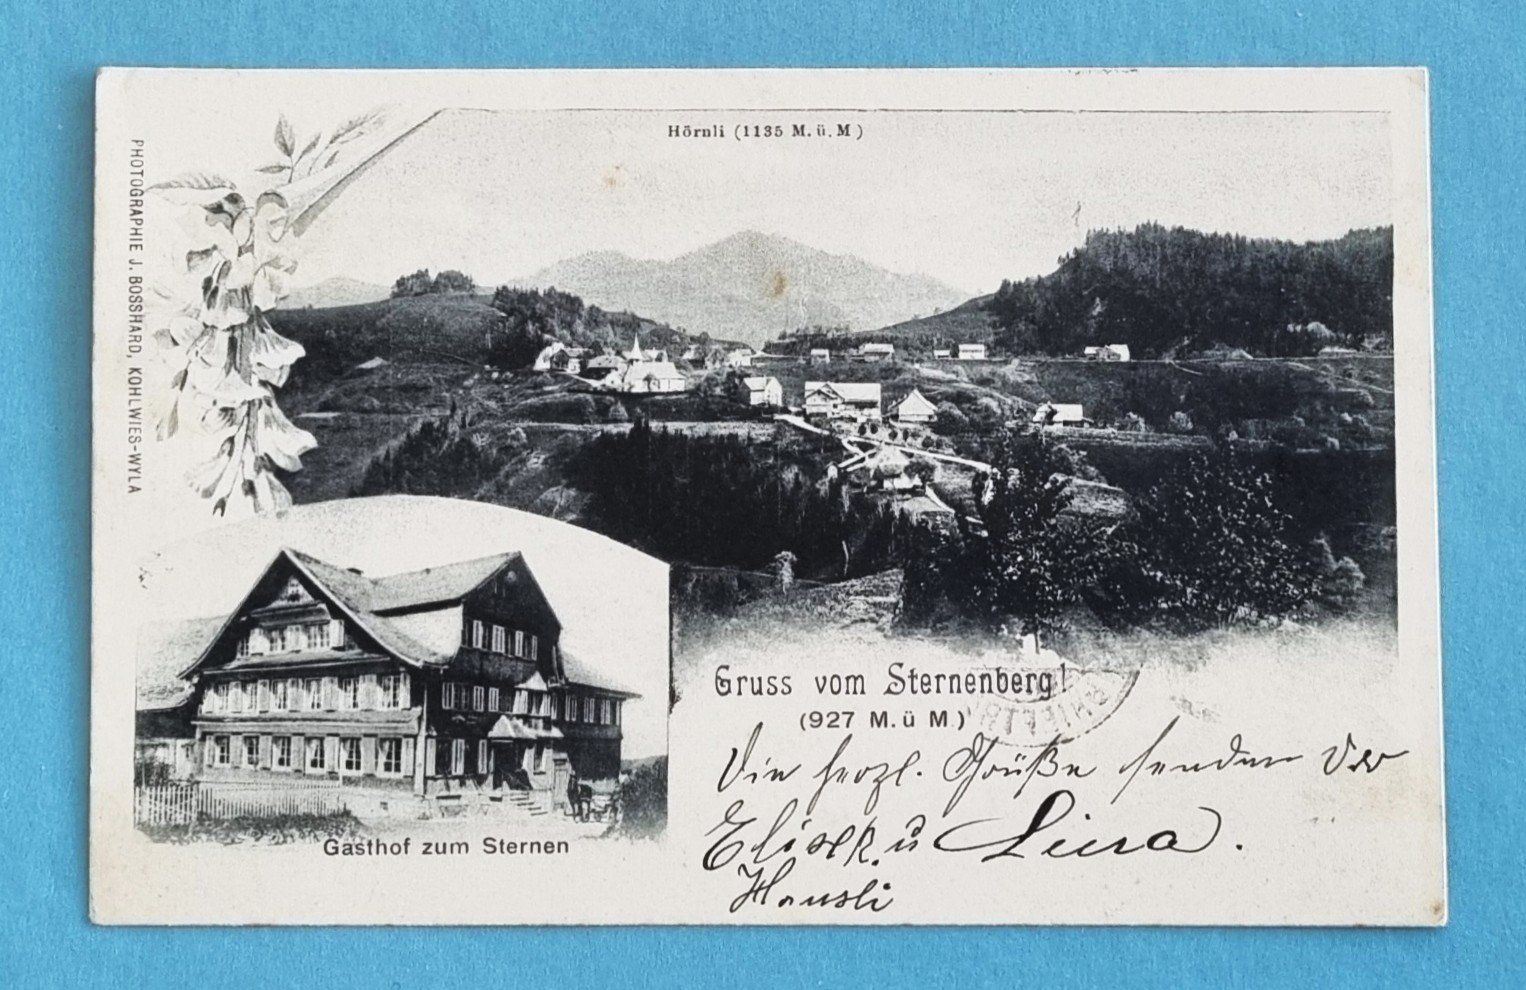 Hörnli (1135 M. ü. M)
PHOTOGRAPHIE J. BOSSHARD, KOHLWIES-WYLA
Gruss vom Sternenberg!
(927 M. ü M.)
herzl. Grüße senden
u Lina.
Hausli
Gasthof zum Sternen